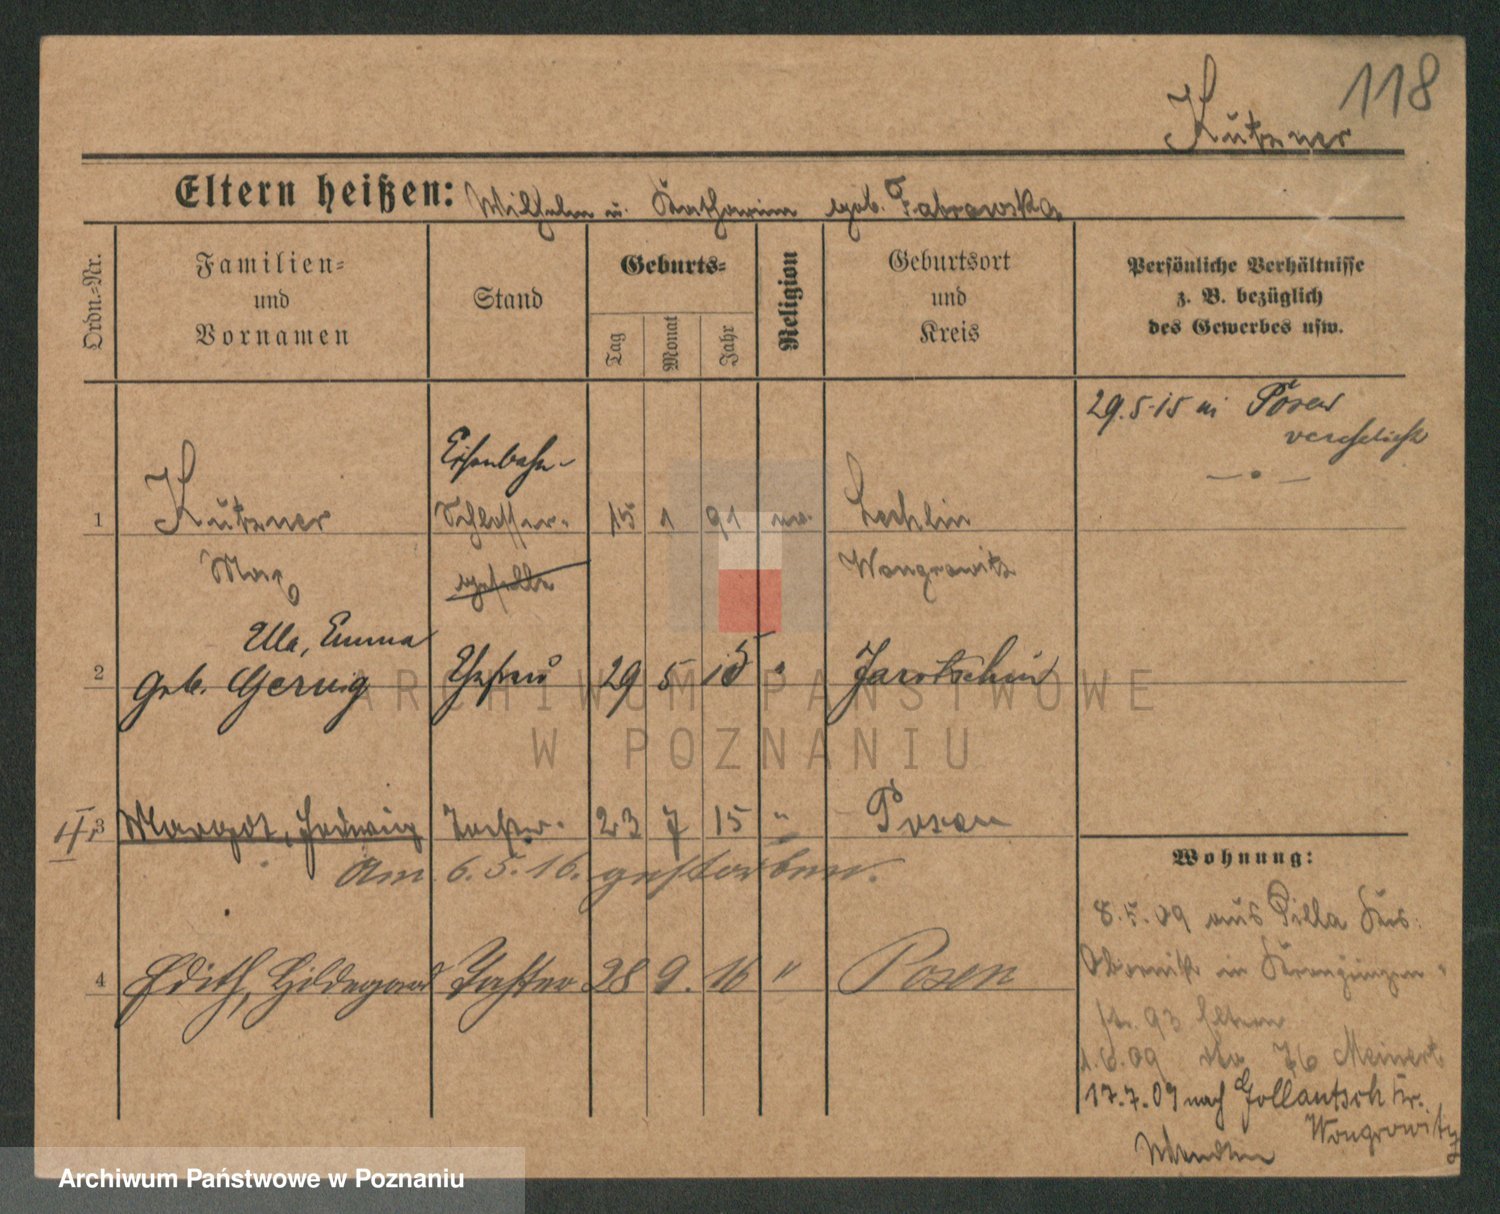 118
Kutzner
Eltern heißen: Wilhelm u. Katharina geb. Fabrowska
Ordn.-Nr.
Familien-
und
Vornamen
Stand
Geburts-
Tag
Monat
Jahr
Religion
Geburtsort
und
Kreis
Persönliche Verhältnisse
z. B. bezüglich
des Gewerbes usw.
29.5.15 in Posen
verehelicht
Eisenbahn-
1 Kutzner Schlosser- 15 1 91 ev. Lechlin
Max geselle Wongrowitz
Ella, Emma
2 geb. Gerwig Ehefrau 29 5 15 " Jarotschin
II. 3 Margot, Hedwig Tochter 23 7 15 " Posen
Am 6.5.16. gestorben.
4 Edith, Hildegard Tochter 28 9. 16 " Posen
Wohnung:
8.5.09 aus Pilla Krs.
Obornik in
93 Eltern
1.6.09 76 Meinert
17.7.09 nach Gollantsch Kr.
Wongrowitz
ARCHIWUM PAŃSTWOWE
W POZNANIU
Archiwum Państwowe w Poznaniu